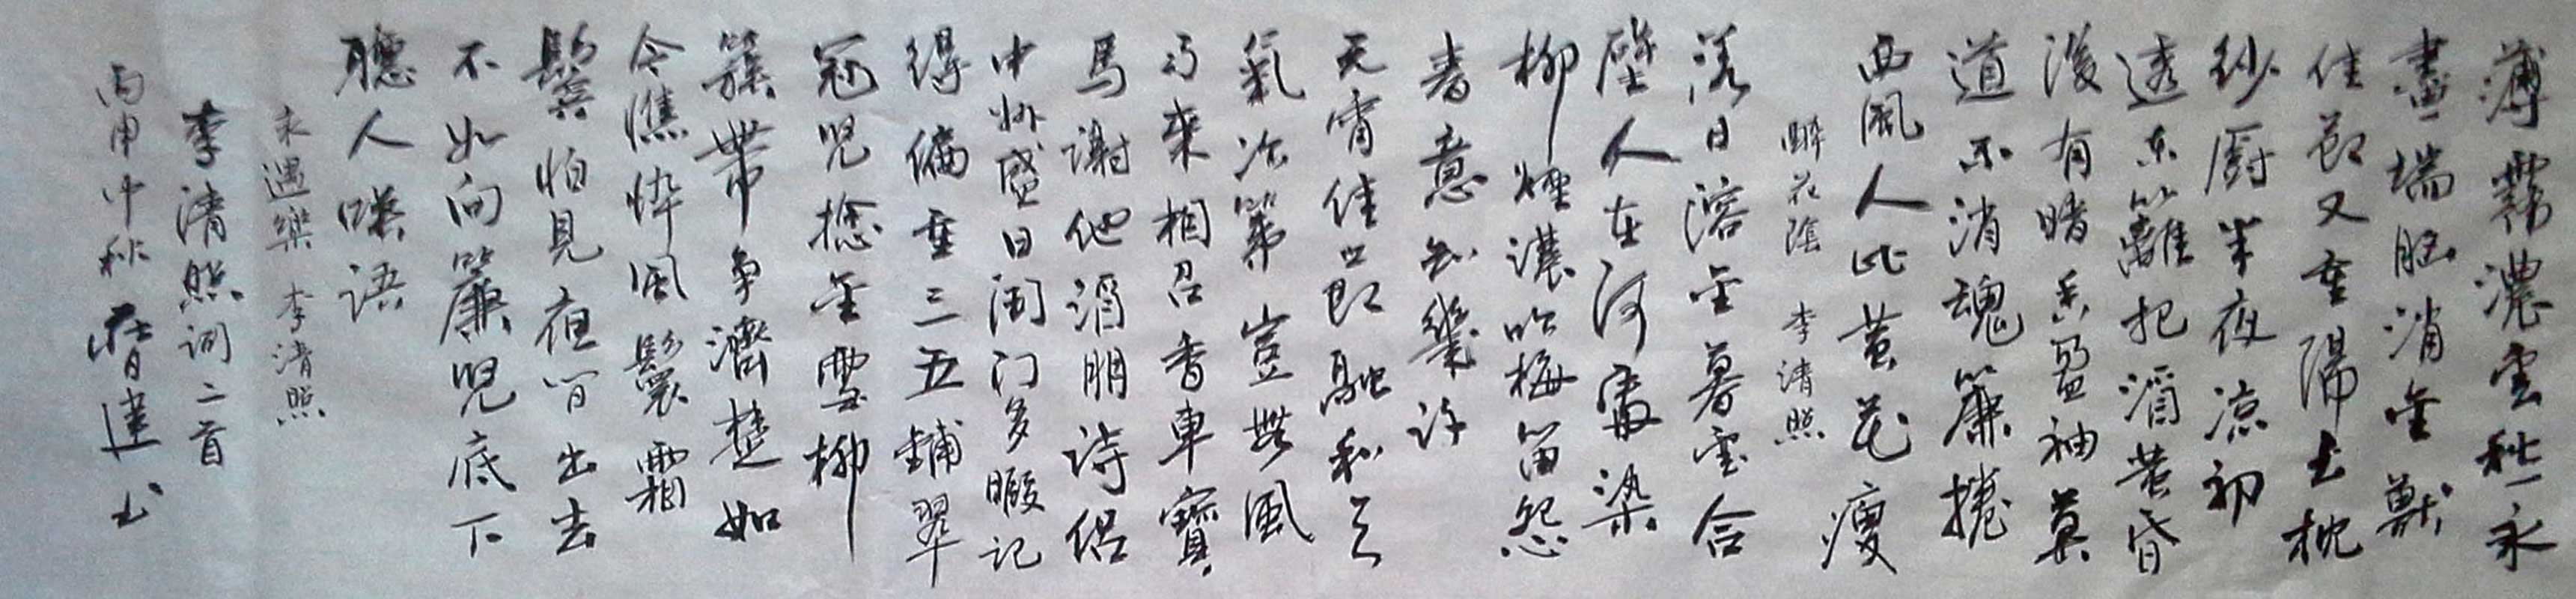 薄霧濃雲愁永
晝瑞脑消金獸
佳節又重陽玉枕
纱厨半夜凉初
透东籬把酒黄昏
後有暗香盈袖莫
道不消魂簾捲
西風人比黄花瘦
醉花陰 李清照
落日溶金暮雲合
壁人在何處染
柳煙濃吹梅笛怨
春意知幾许
元宵佳節融和天
氣次第豈無風
雨來相召香車寶
馬謝他酒朋詩侣
中州盛日闺门多暇记
得偏重三五鋪翠
冠兒捻金雪柳
簇带争濟楚如
今憔悴風鬟霜
鬢怕見夜间出去
不如向簾兒底下
聽人咲语
永遇樂 李清照
李清照词二首
丙申中秋 建书